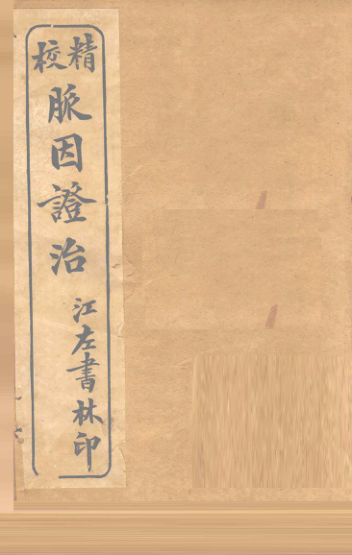 精校
脈因證治
江左書林印